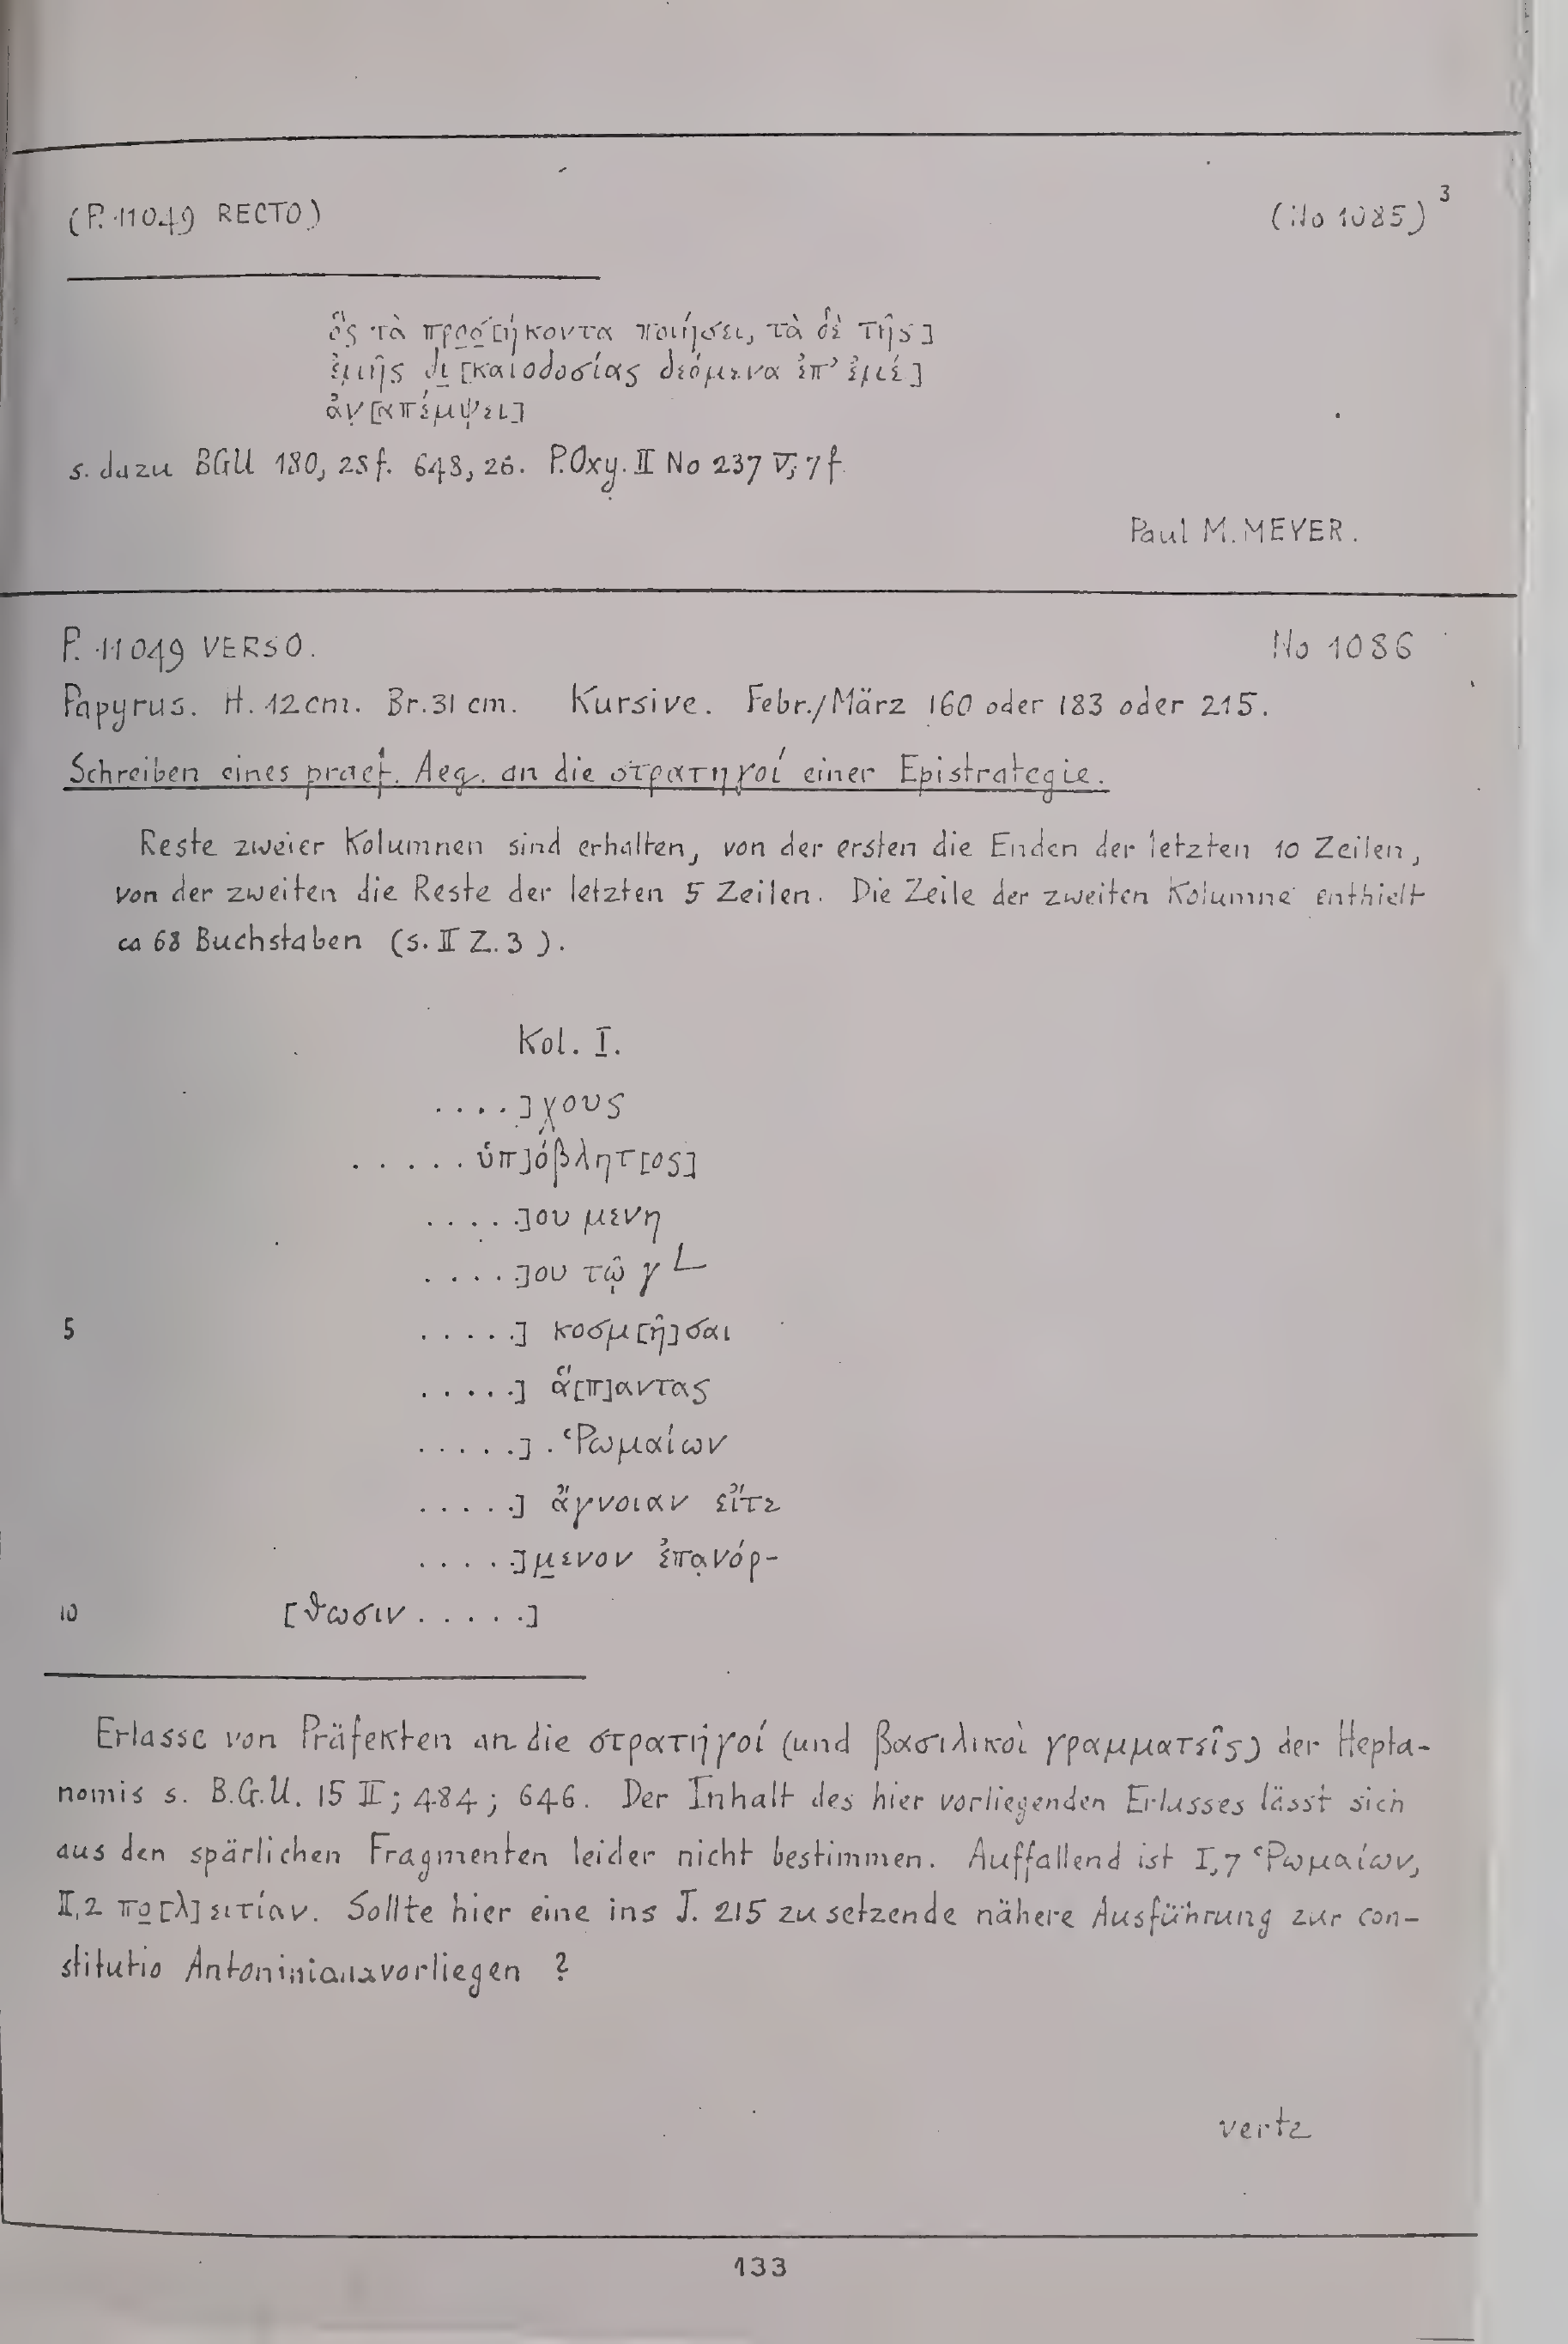 (P. 11049 RECTO) (No 1085) 3
ὃς τὰ προσ[ήκοντα ποιήσει, τὰ δὲ τῆς]
ἐμῆς δι[καιοδοσίας δεόμενα ἐπ' ἐμέ]
ἀν[απέμψει]
s. dazu BGU 180, 25f. 648, 26. P.Oxy. II No 237 V, 7f
Paul M. MEYER.
P. 11049 VERSO. No 1086
Papyrus. H. 12cm. Br. 31 cm. Kursive. Febr./März 160 oder 183 oder 215.
Schreiben eines praef. Aeg. an die στρατηγοί einer Epistrategie.
Reste zweier Kolumnen sind erhalten, von der ersten die Enden der letzten 10 Zeilen,
von der zweiten die Reste der letzten 5 Zeilen. Die Zeile der zweiten Kolumne enthielt
ca 68 Buchstaben (s. II Z. 3 ).
Kol. I.
....]χους
.....ὑπ]όβλητ[ος]
.....]ου μενη
.....]ου τῷ γ L
5 .....] κοσμ[ῆ]σαι
.....] ἅ[π]αντας
.....] . Ῥωμαίων
.....] ἄγνοιαν εἴτε
.....]μενον ἐπανόρ-
10 [θωσιν .....]
Erlasse von Präfekten an die στρατηγοί (und βασιλικοὶ γραμματεῖς) der Hepta-
nomis s. B.G.U. 15 II; 484; 646. Der Inhalt des hier vorliegenden Erlasses lässt sich
aus den spärlichen Fragmenten leider nicht bestimmen. Auffallend ist I,7 Ῥωμαίων,
II,2 πο[λ]ειτίαν. Sollte hier eine ins J. 215 zu setzende nähere Ausführung zur con-
stitutio Antoniniana vorliegen ?
verte
133